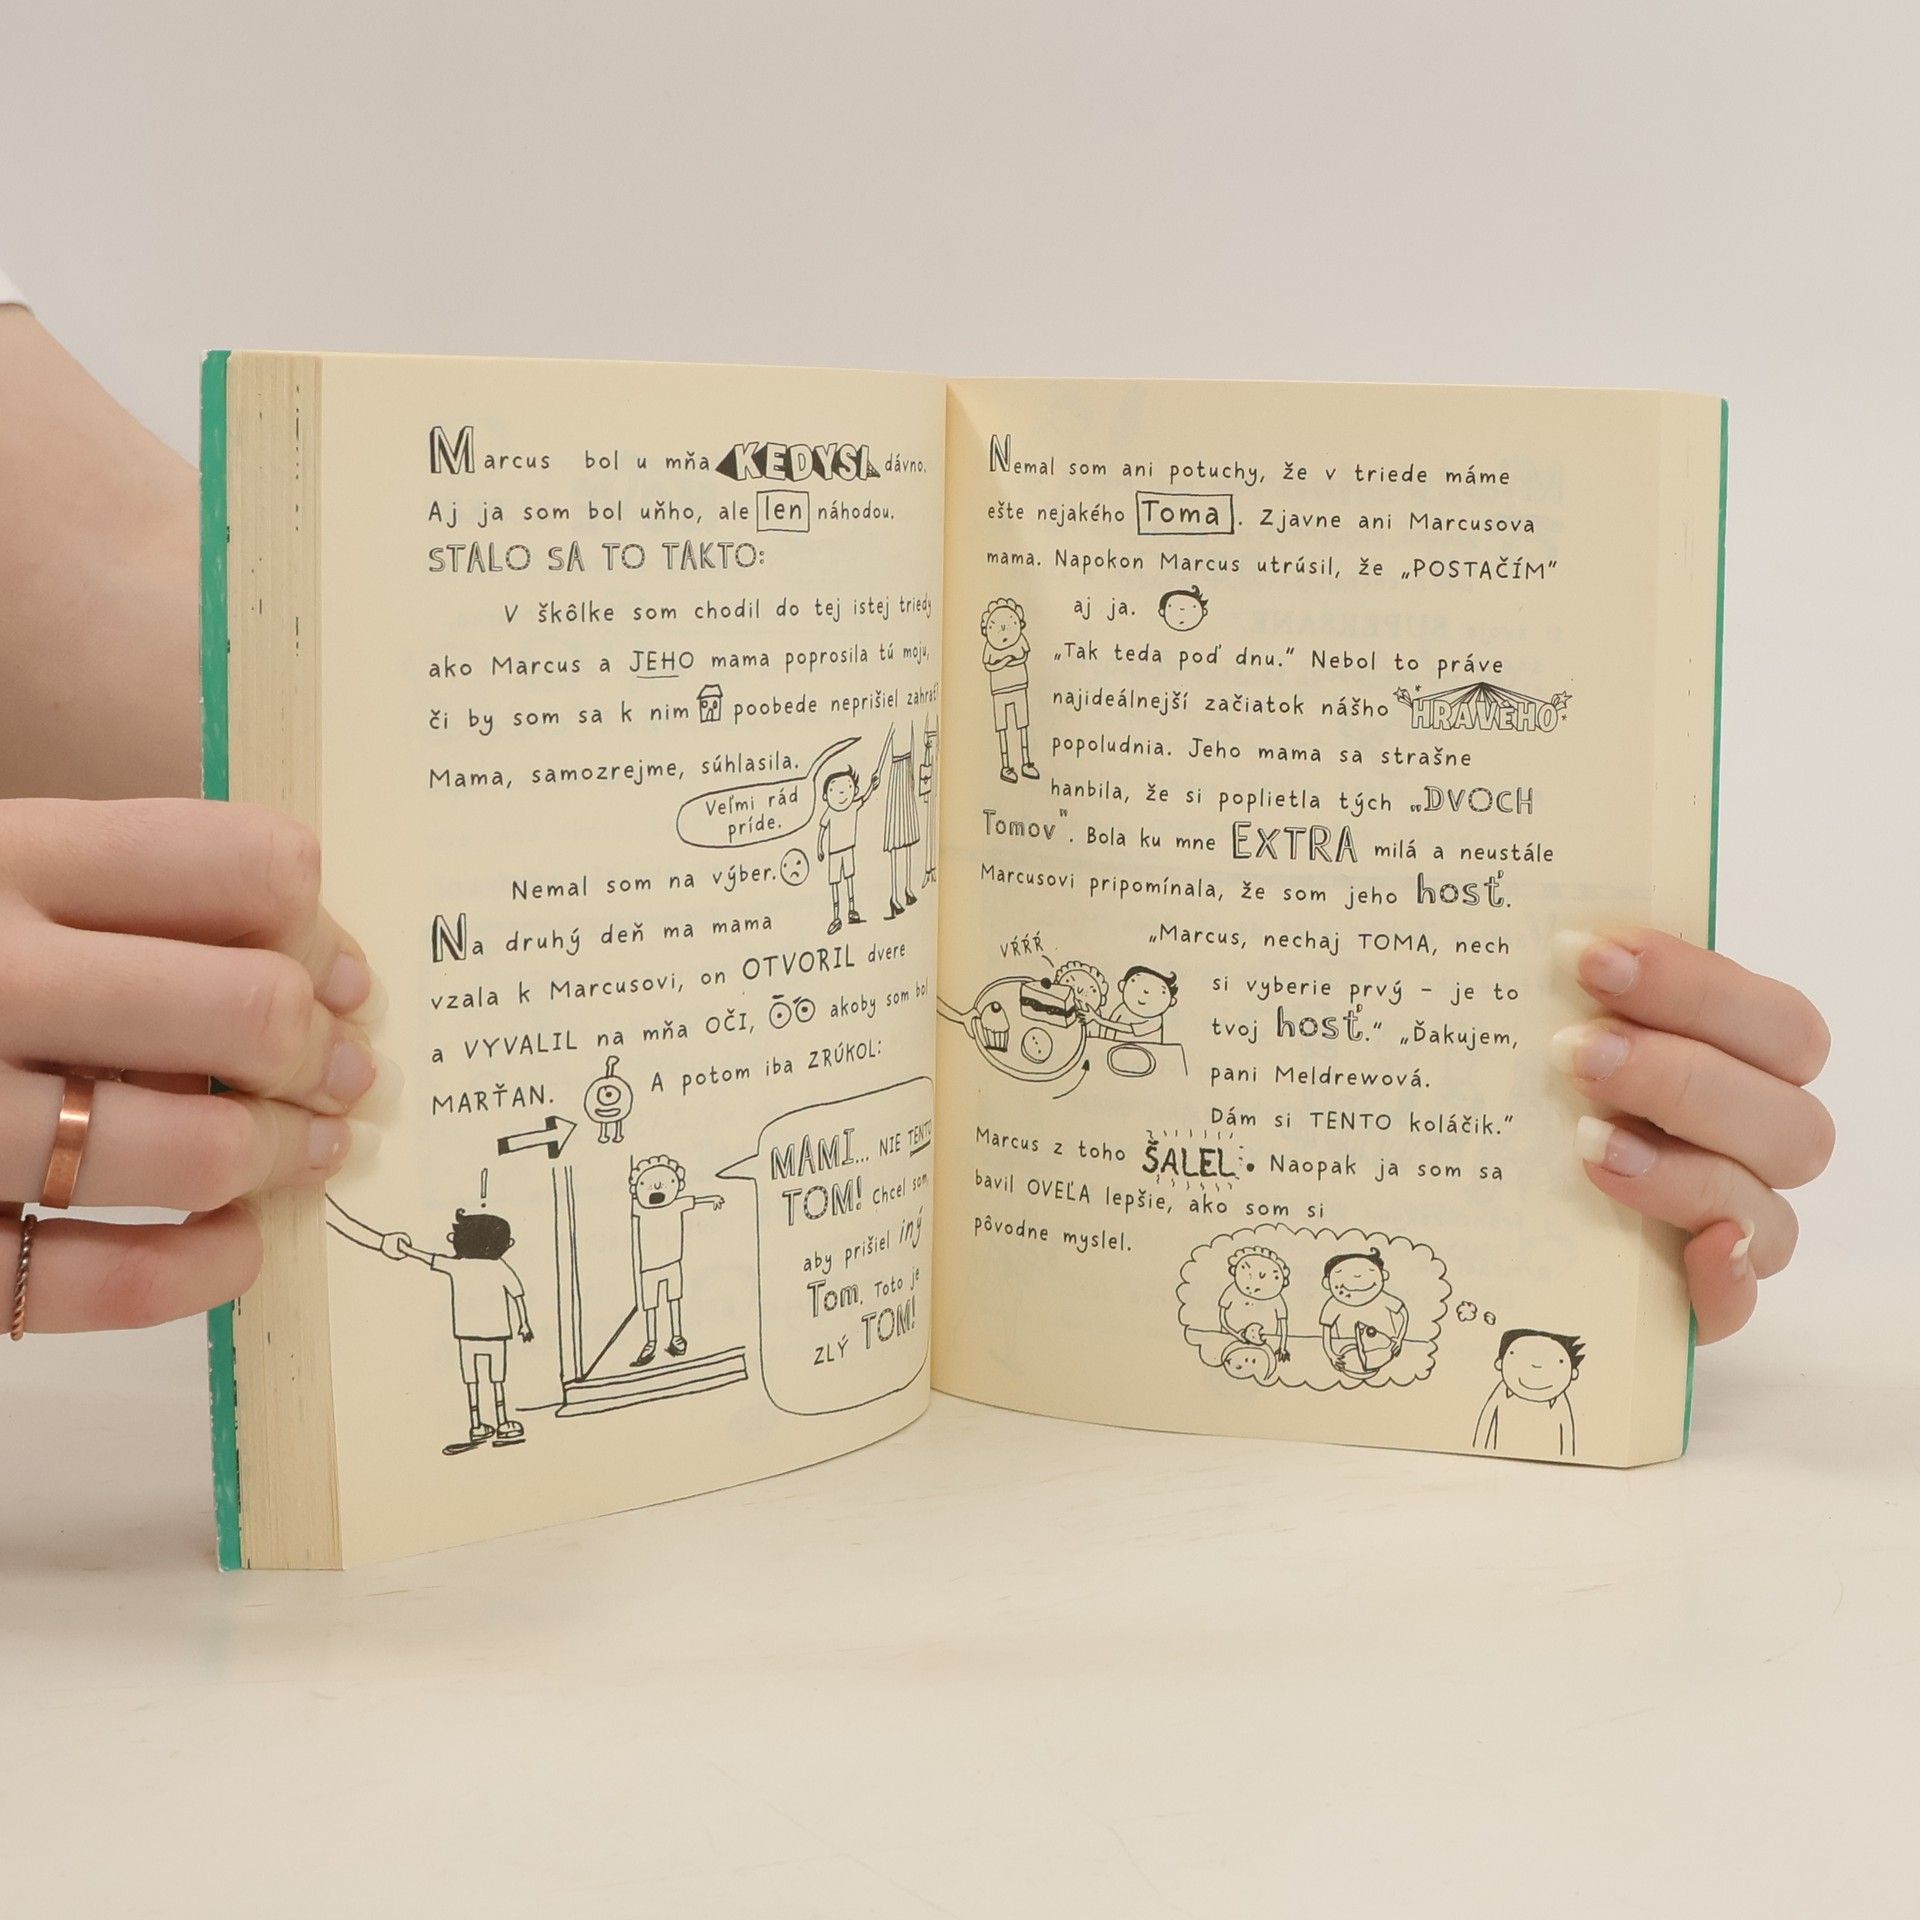 Marcus bol u mňa KEDYSI dávno.
Aj ja som bol uňho, ale len náhodou.
STALO SA TO TAKTO:
V škôlke som chodil do tej istej triedy
ako Marcus a JEHO mama poprosila tú moju,
či by som sa k nim poobede neprišiel zahrať.
Mama, samozrejme, súhlasila.
Veľmi rád
príde.
Nemal som na výber.
Na druhý deň ma mama
vzala k Marcusovi, on OTVORIL dvere
a VYVALIL na mňa OČI, akoby som bol
MARŤAN. A potom iba ZRÚKOL:
!
MAMI... NIE TENTO
TOM! Chcel som,
aby prišiel iný
Tom. Toto je
ZLÝ TOM!
Nemal som ani potuchy, že v triede máme
ešte nejakého Toma. Zjavne ani Marcusova
mama. Napokon Marcus utrúsil, že „POSTAČÍM“
aj ja.
„Tak teda poď dnu.“ Nebol to práve
najideálnejší začiatok nášho HRAVÉHO
popoludnia. Jeho mama sa strašne
hanbila, že si poplietla tých „DVOCH
Tomov“. Bola ku mne EXTRA milá a neustále
Marcusovi pripomínala, že som jeho hosť.
VŔŔŔ
„Marcus, nechaj TOMA, nech
si vyberie prvý – je to
tvoj hosť.“ „Ďakujem,
pani Meldrewová.
Dám si TENTO koláčik.“
Marcus z toho ŠALEL. Naopak ja som sa
bavil OVEĽA lepšie, ako som si
pôvodne myslel.